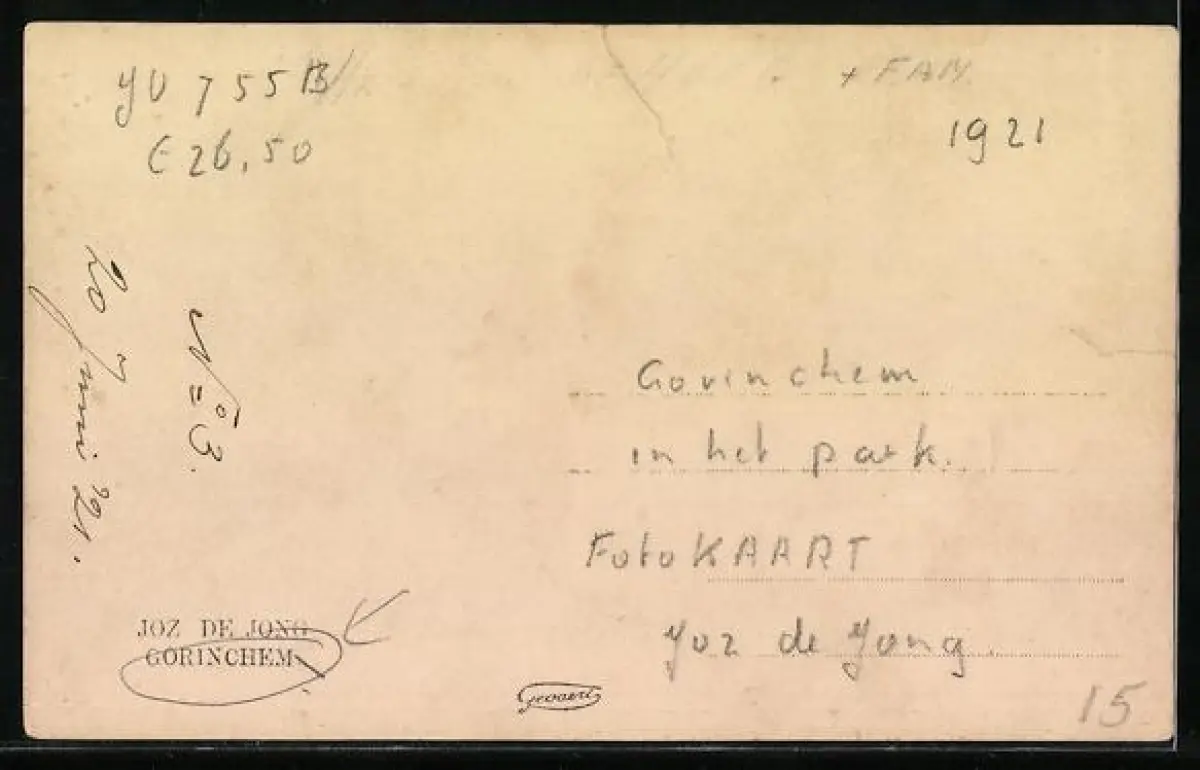 YU 755B
€ 26,50
+ FAM.
1921
20 Juni 21.
No 3.
Gorinchem
in het park.
FotoKAART
Joz de Jong.
JOZ DE JONG
GORINCHEM
Gevaert
15